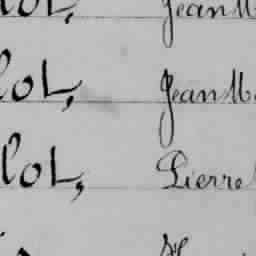 lot, Jean M
lot, Jean M
lot, Pierre